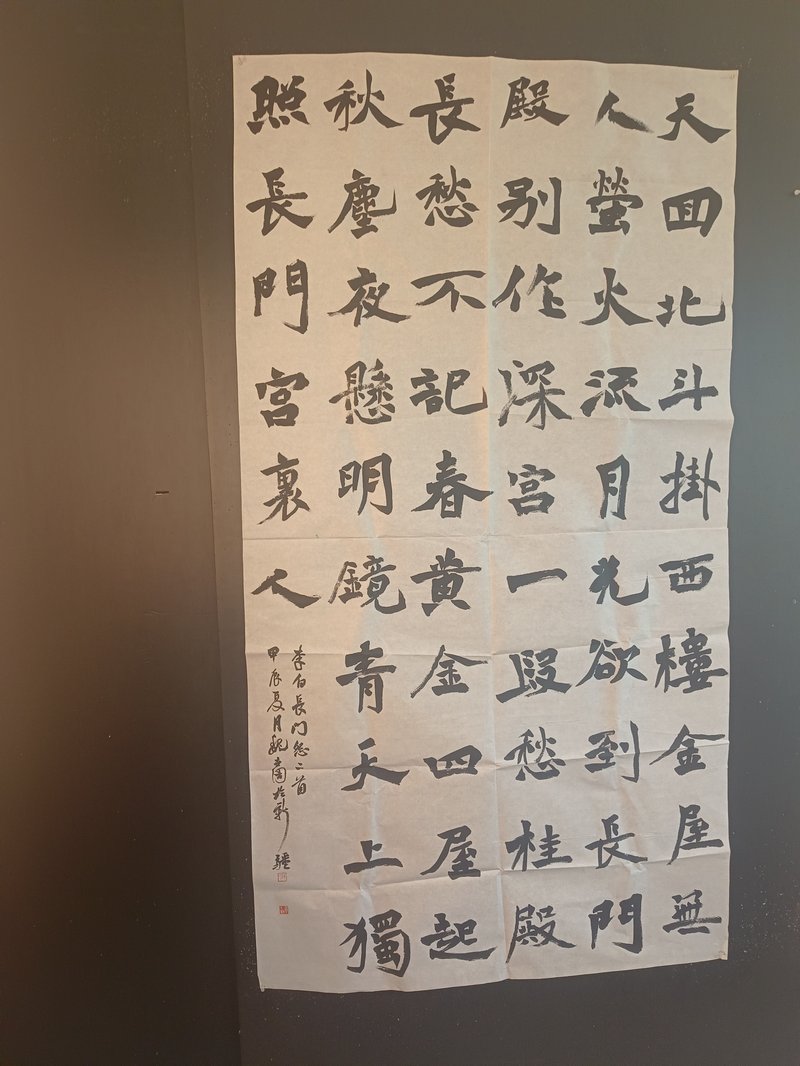 天囬北斗掛西樓金屋無
人螢火流月光欲到長門
殿别作深宫一段愁桂殿
長愁不記春黄金四屋起
秋塵夜懸明鏡青天上獨
照長門宫裏人
李白長门怨二首
甲辰夏月魏於新疆